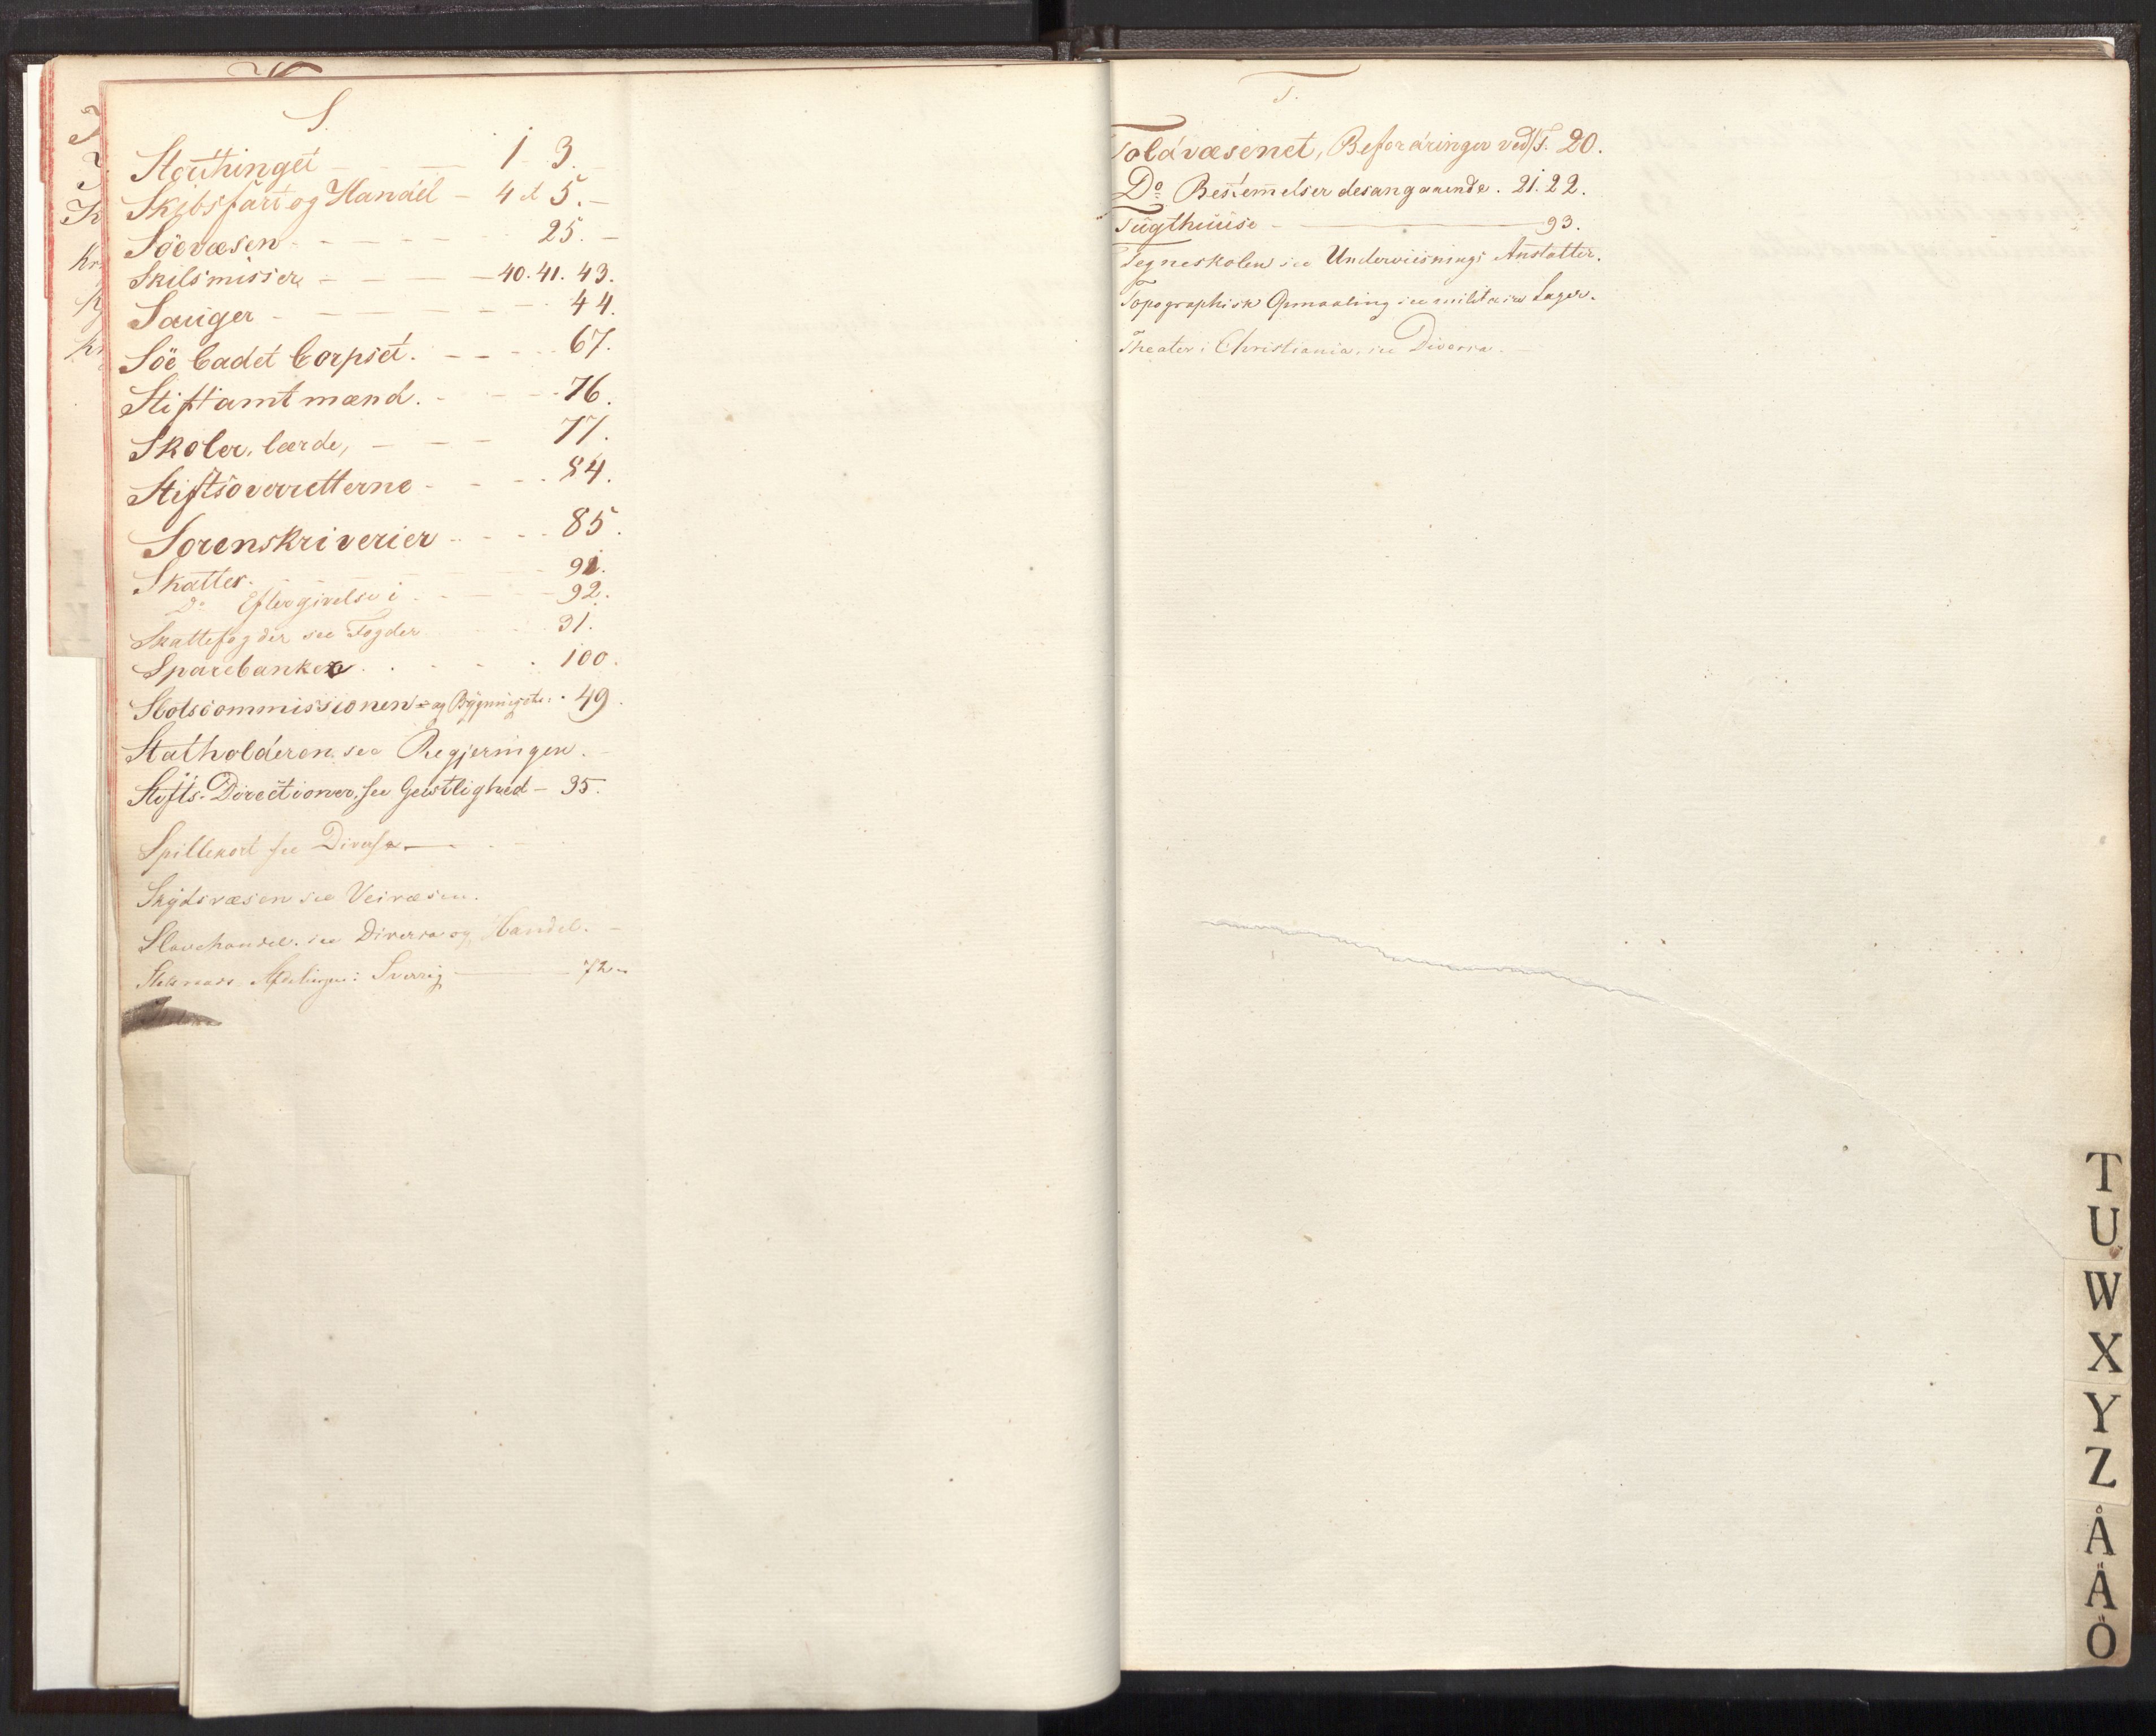 S.
Storthinget - - - 1 - 3.
Skibsfart og Handel - 4 à 5. -
Söevæsen - - - - - 25. -
Skilsmisser - - - 40. 41. 43.
Sauger - - - - - 44.
Söe Cadet Corpset. - - - - 67.
Stiftamtmænd. - - - 76.
Skoler, lærde, - - - 77.
Stiftsoverretterne - - - 84.
Sorenskriverier - - - - 85.
Skatter. - - - - 91.
Do Eftergivelse i - - - 92.
Skattefogder see Fogder 31.
Sparebanker . . . . 100.
Slotscommissionen - og Bygningets: . 49.
Statholderen, see Regjeringen. -
Stifts-Directioner, see Geistlighed - 35.
Spillekort see Diversa -
Skydsvæsen see Veivæsen.
Slavehandel. see Diversa og Handel. -
Sverrig - 72.
T.
Toldvæsenet, Befordringer ved/T. 20.
Do Bestemelser desangaaende. 21. 22.
Tugthuuse - 93.
Tegneskolen see Underviisnings Anstalter.
Topographisk Opmaaling see militaire Sager.
Theater i Christiania, see Diversa. -
T
U
W
X
Y
Z
Å
Ä
Ö